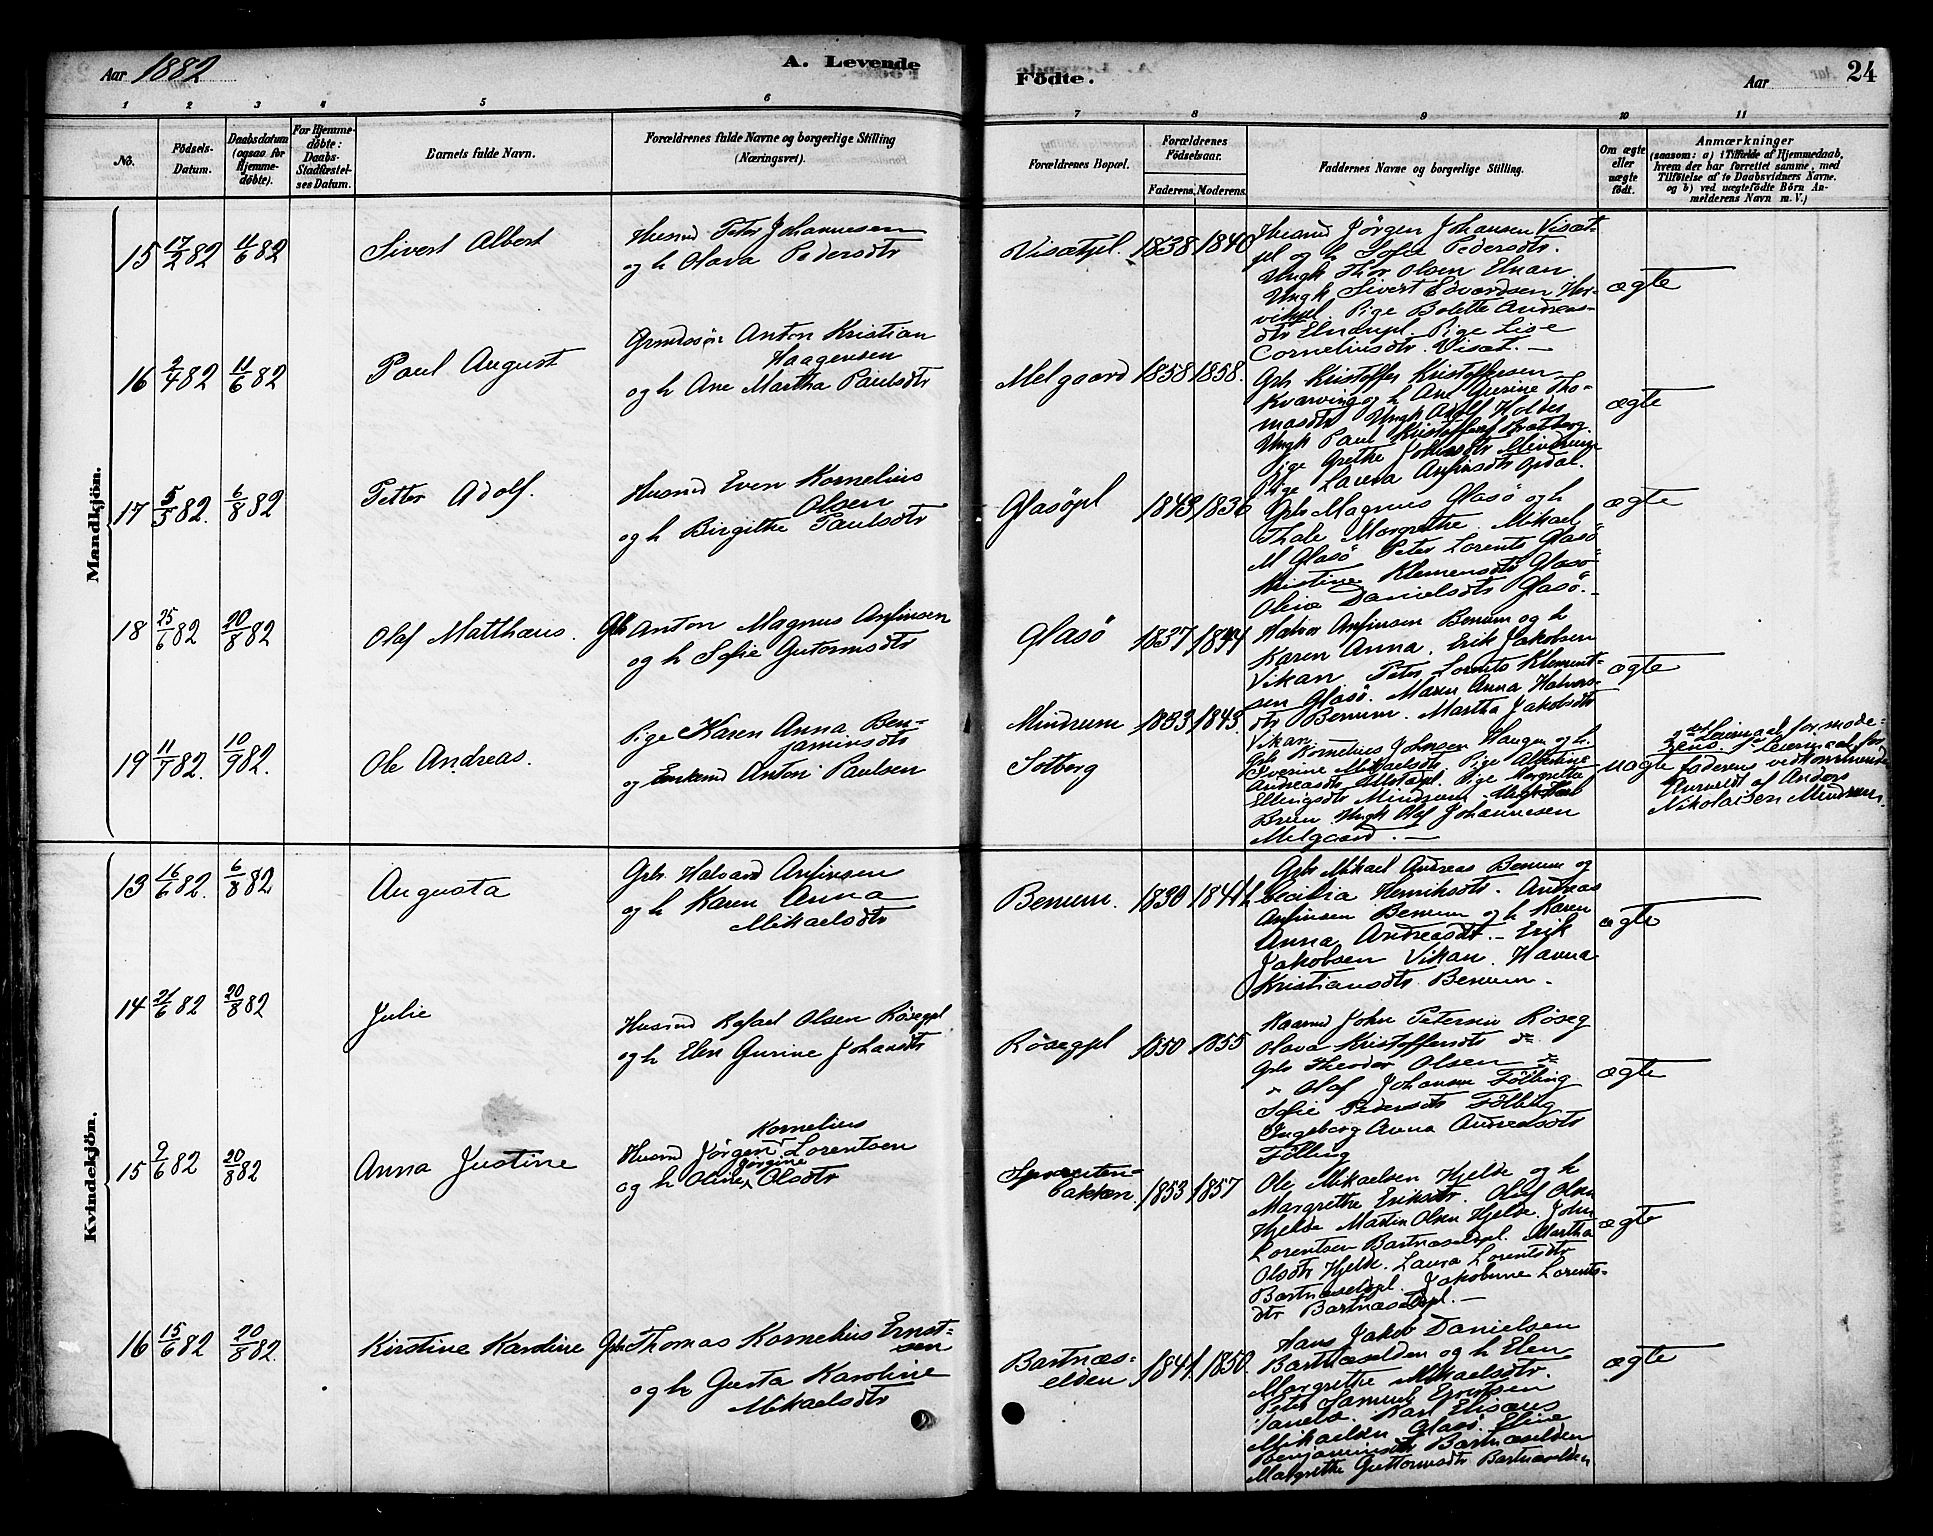 Aar 1882
A. Levende
Födte.
Aar
24
1 2 3 4 5 6 7 8 9 10 11
No.
Födsels-
Datum.
Daabsdatum
(ogsaa for
Hjemme-
døbte).
For Hjemme-
døbte:
Daabs-
Stadfæstel-
ses Datum.
Barnets fulde Navn.
Forældrenes fulde Navne og borgerlige Stilling
(Næringsvei).
Forældrenes Bopæl.
Forældrenes
Födselsaar.
Faderens. Moderens.
Faddernes Navne og borgerlige Stilling.
Om ægte
eller
uægte
födt.
Anmærkninger
(saasom: a) i Tilfælde af Hjemmedaab,
hvem der har forrettet samme, med
Tilföielse af to Daabsvidners Navne,
og b) ved uægtefödte Börn An-
melderens Navn m. V.)
Mandkjön.
15 17/2 82 11/6 82
Sivert Albert
Husmd Peter Johannesen
og h Olava Pedersdtr
Visætpl. 1838 1840
Husmd Jørgen Johansen Visæt-
pl og h Sofie Pedersdtr.
Ungk Thor Olsen Elnan
Ungk Sivert Edvardsen
Pige Bolette Andreas-
dtr Elnanpl. Pige Lise
Corneliusdtr. Visæt. —
ægte
16 2/4 82 11/6 82
Paul August
Anton Kristian
Haagensen
og h Ane Martha Paulsdtr
Melgaard 1858 1858.
Gbr Kristoffer Kristoffersen
Kvarving og h Ane Gurine Tho-
masdtr Ungk Adolf
Ungk Paul Kristoffersen
Pige Grethe Johnsdtr Mindrum
Pige Laura Anfinsdtr Opdal.
ægte
17 5/5 82. 6/8 82
Petter Adolf.
Husmd Even Kornelius
Olsen
og h Birgithe Paulsdtr
Glasöpl 1843 1836
Gbr Magnus Glasö og h
Thale Margrethe. Mikael
M Glasö Peter Lorents Glasö
Kristine Klemensdtr Glasö
Oline Danielsdtr Glasö. —
ægte
18 25/6 82 20/8 82
Olaf Matthæus.
Gbr Anton Magnus Anfinsen
og h Sofie Gutormsdtr
Glasö 1837 1844
Halvor Anfinsen Benum og h
Karen Anna. Erik Jakobsen
Vikan Peter Lorents Klement-
sen Glasö. Maren Anna Halvors-
dtr Benum. Martha Jakobsdtr
Vikan.
ægte
19 11/7 82. 10/9 82.
Ole Andreas.
Pige Karen Anna Ben-
jaminsdtr
og Enkemd Anton Paulsen
Mindrum 1833 1843.
Solberg
Gbr Kornelius Johnsen Haugan og h.
Iverine Mikaelsdtr. Pige Albertine
Andreasdtr. Pige Margrethe
Ellingsdtr Mindrum.
Ungk Olaf Johannesen
Melgaard. —
uægte
2det Leiermaal for mode-
rens. Leiermaal for
faderens vedkommende
Anmeldt af Anders
Nikolaisen Mindrum.
Kvindekjön.
13 16/6 82. 6/8 82
Augusta
Gbr. Halvard Anfinsen
og h Karen Anna
Mikaelsdtr
Benum. 1830 1841
Gbr Mikael Andreas Benum og
h Cecilia Henriksdtr. Andreas
Anfinsen Benum og h Karen
Anna Andreasdtr. — Erik
Jakobsen Vikan. Hanna
Kristiansdtr. Benum.
ægte
14 21/6 82 20/8 82
Julie
Husmd Rafael Olsen Røsegpl
og h Elen Gurine Johansdtr
Røsegpl 1850 1855
Kaarmd John Petersen Røseg
Olava Kristoffersdtr do
Gbr Theodor Olsen do
" Olaf Johansen Fölling
Sofie Pedersdtr Fölling
Ingeborg Anna Andreasdtr
Fölling
ægte
15 2/6 82 20/8 82
Anna Justine
Kornelius
Husmd Jørgen Lorentsen
Jørgine
og h Oline Olsdtr
bakken. 1853 1857
Ole Mikaelsen Hjelde og h
Margrethe Eriksdtr. Olaf Olsen
Hjelde Martin Olsen Hjelde. John
Lorentsen Bartnæseldpl. Martha
Olsdtr Hjelde. Laura Lorentsdtr
Bartnæseldpl. Jakobine Lorents-
dtr Bartnæseldpl. —
ægte
16 15/6 82 20/8 82.
Kirstine Karoline
Gbr Thomas Kornelius Ernst-
sen
og h Gusta Karoline
Mikaelsdtr
Bartnæs-
elden 1841. 1850.
Hans Jakob Danielsen
Bartnæselden og h Elen
Margrethe Mikaelsdtr.
Peter Samuel Ernstsen
Karl Elisæus
Mikaelsen Glasö. Eline
Benjaminsdtr Bartnæselden
Margrethe Guttormsdtr Bartnæselden
ægte